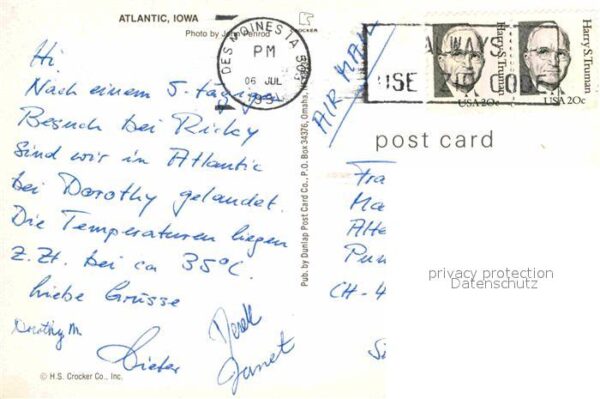 ATLANTIC, IOWA
Photo by John Penrod
CROCKER
DES MOINES IA
PM
06 JUL
Harry S. Truman
Harry S. Truman
USA 20c
USA 20c
ALWAYS
USE ZIP CODE
AIR MAIL
post card
Hi
Nach einem 5-tägigen
Besuch bei Ricky
sind wir in Atlantic
bei Dorothy gelandet.
Die Temperaturen liegen
z.Zt. bei ca 35°C.
Liebe Grüsse
Dorothy M.
Dieter
Derek
Janet
© H.S. Crocker Co., Inc.
Pub. by Dunlap Post Card Co., P.O. Box 34376, Omaha,
Fra
Ma
Alte
Pun
privacy protection
Datenschutz
CH-4